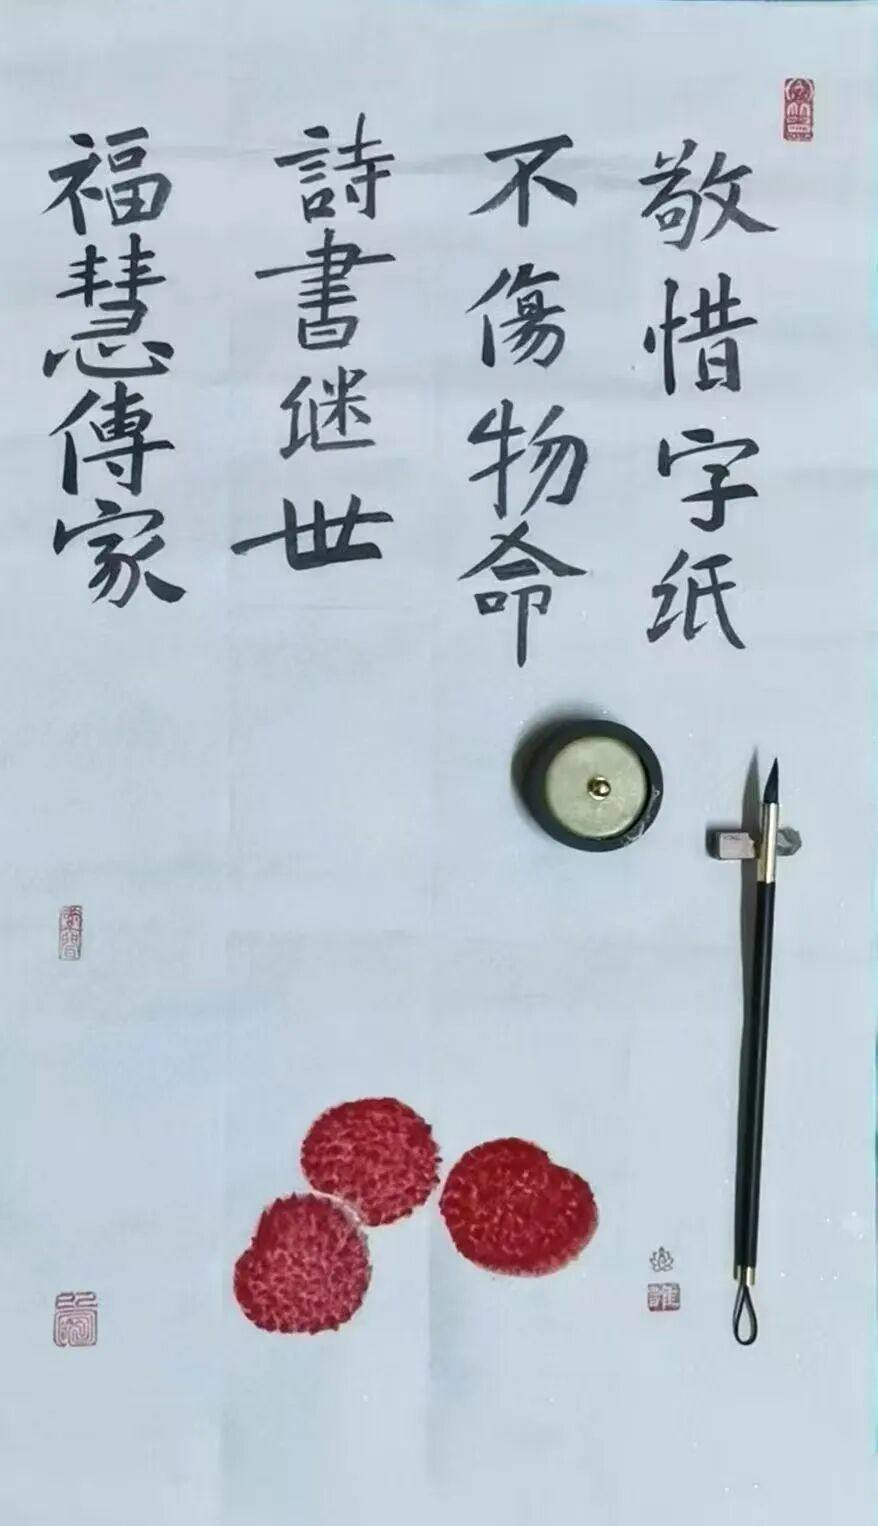 敬惜字纸
不傷物命
詩書继世
福慧傳家